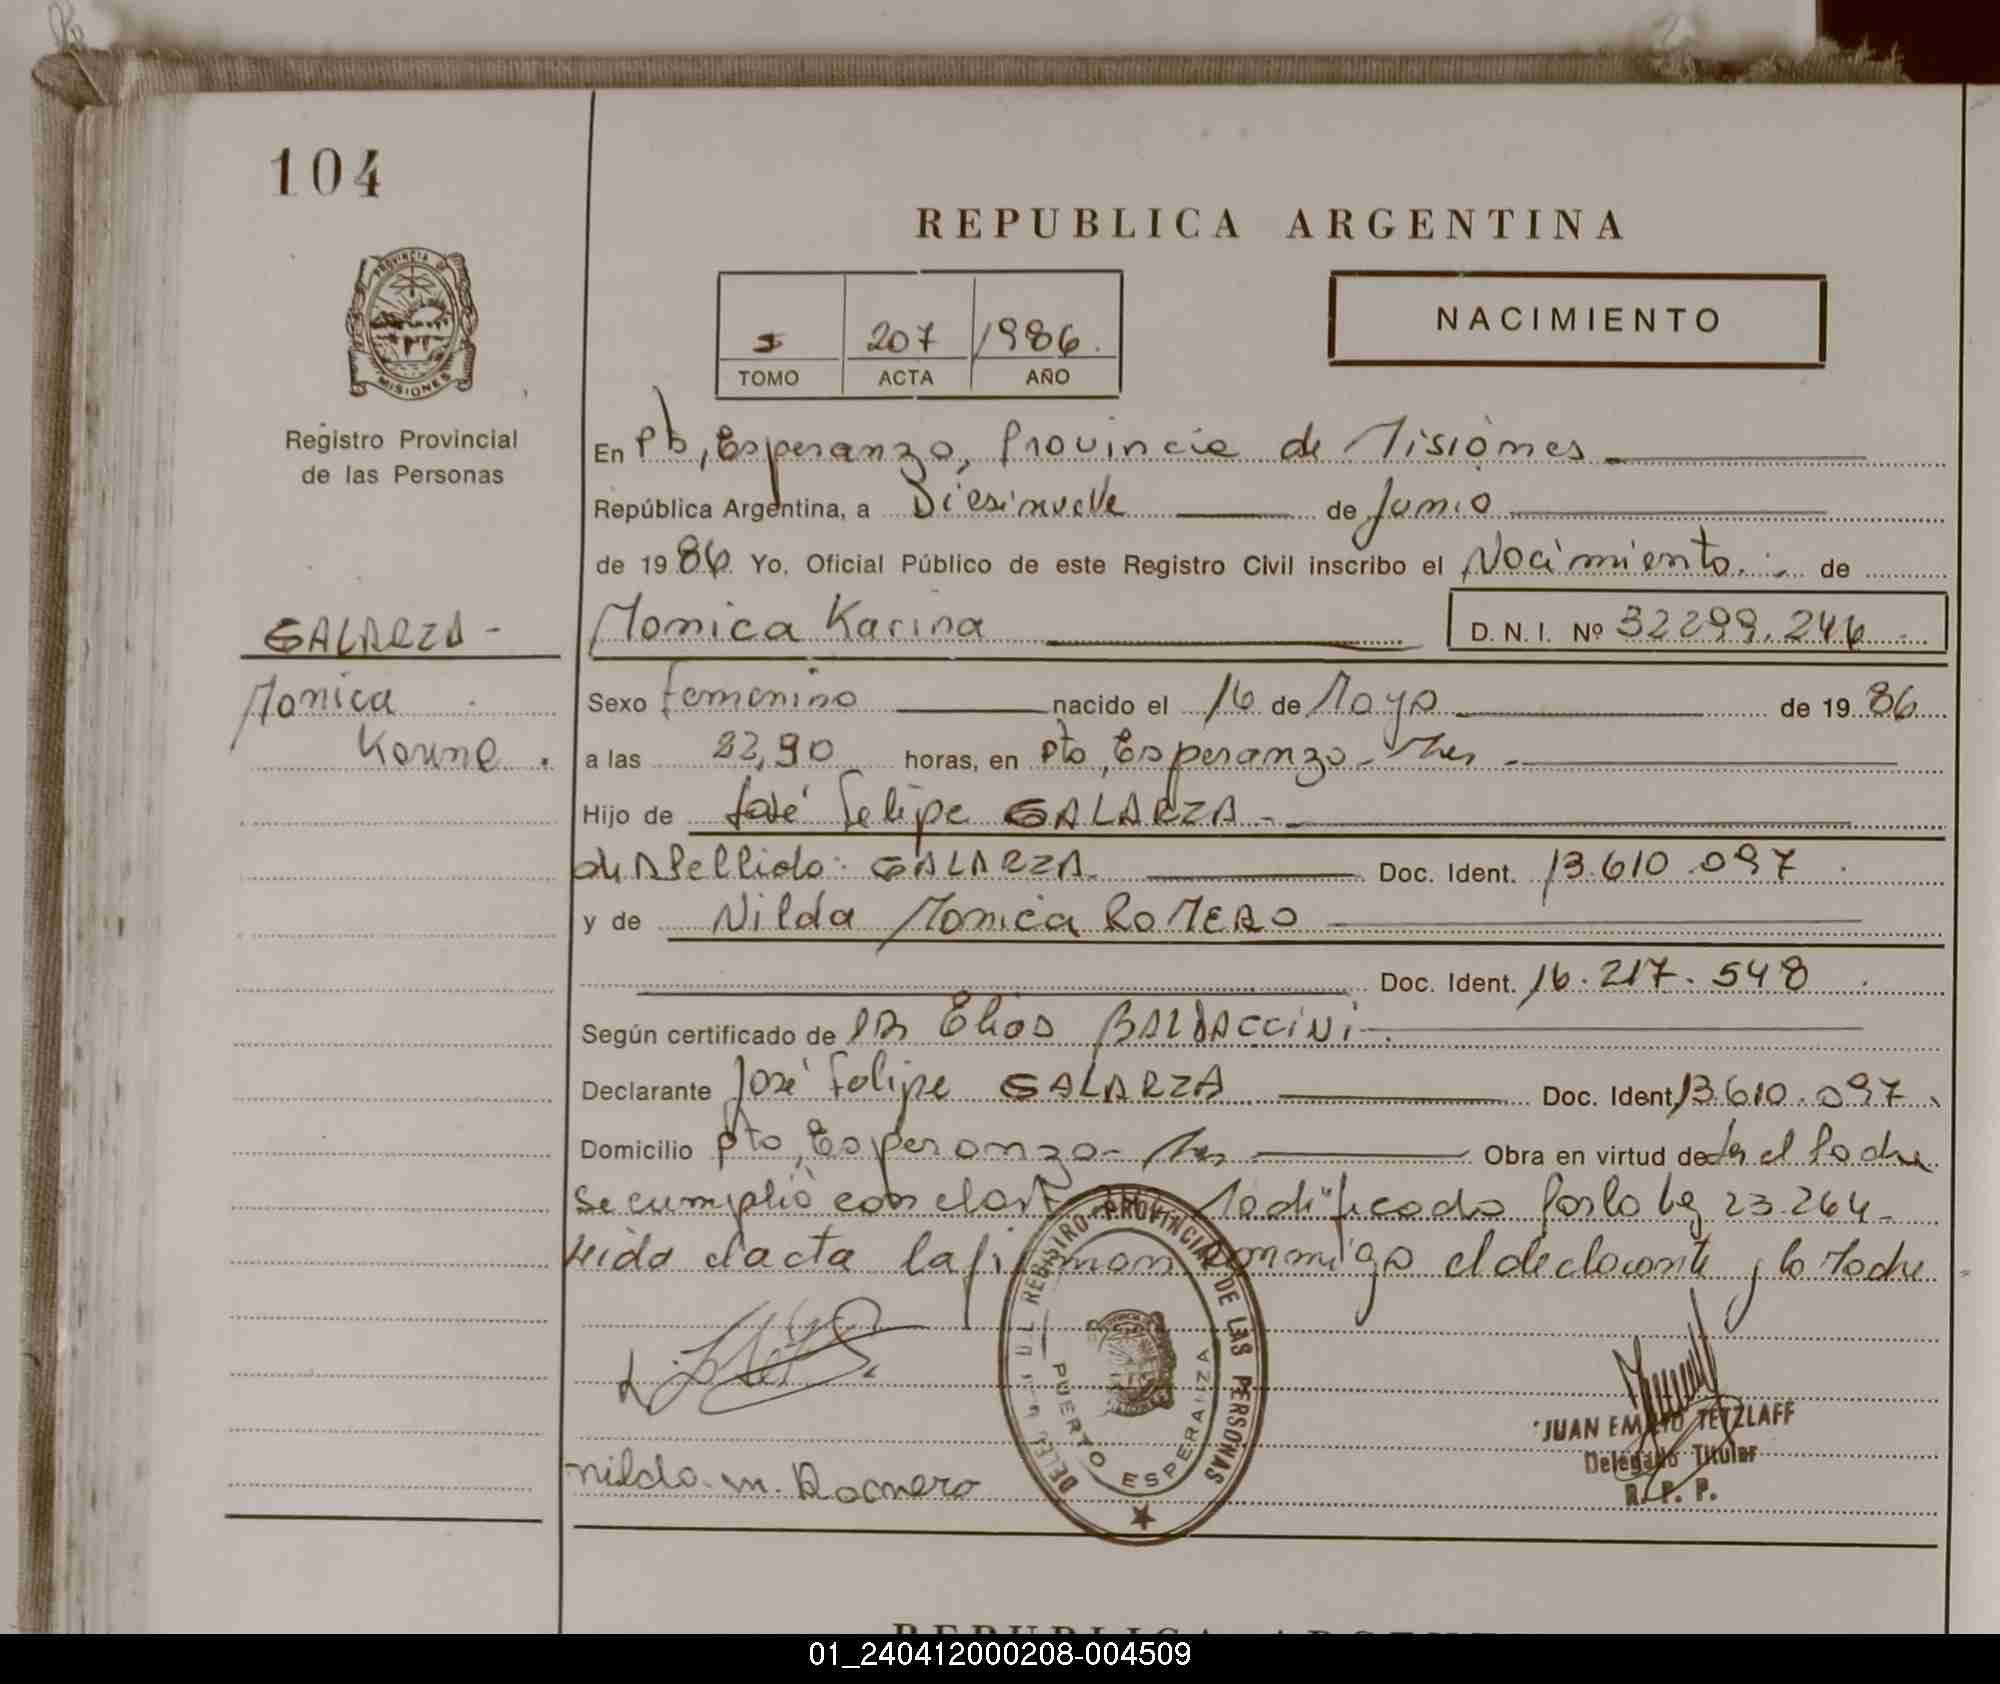 104
REPUBLICA ARGENTINA
PROVINCIA DE
MISIONES
Registro Provincial
de las Personas
207 1986.
TOMO ACTA AÑO
NACIMIENTO
En Pto, Esperanza, Provincia de Misiones
República Argentina, a Diesinueve de Junio
de 1986. Yo, Oficial Público de este Registro Civil inscribo el Nacimiento de
GALARZA -
Monica Karina D. N. I. Nº 32299.246
Monica
Karina.
Sexo femenino nacido el 16 de Mayo de 1986
a las horas, en Pto, Esperanza - Mnes
Hijo de José Felipe GALARZA -
de Apellido: GALARZA - Doc. Ident. 13.610.097
y de Nilda Monica ROMERO
Doc. Ident. 16.217.548
Según certificado de DR Elias BALDACCINI
Declarante José Felipe GALARZA Doc. Ident. 13.610.097.
Domicilio Pto, Esperanza - Mnes Obra en virtud de ser el Padre
se cumplió con el art Modificado por la ley 23.264 -
Leida el acta la firman conmigo el declarante y la Madre
REGISTRO PROVINCIAL DE LAS PERSONAS
PUERTO ESPERANZA
JUAN EMILIO TETZLAFF
Delegado Titular
R. P. P.
nilda. m. Romero
01_240412000208-004509